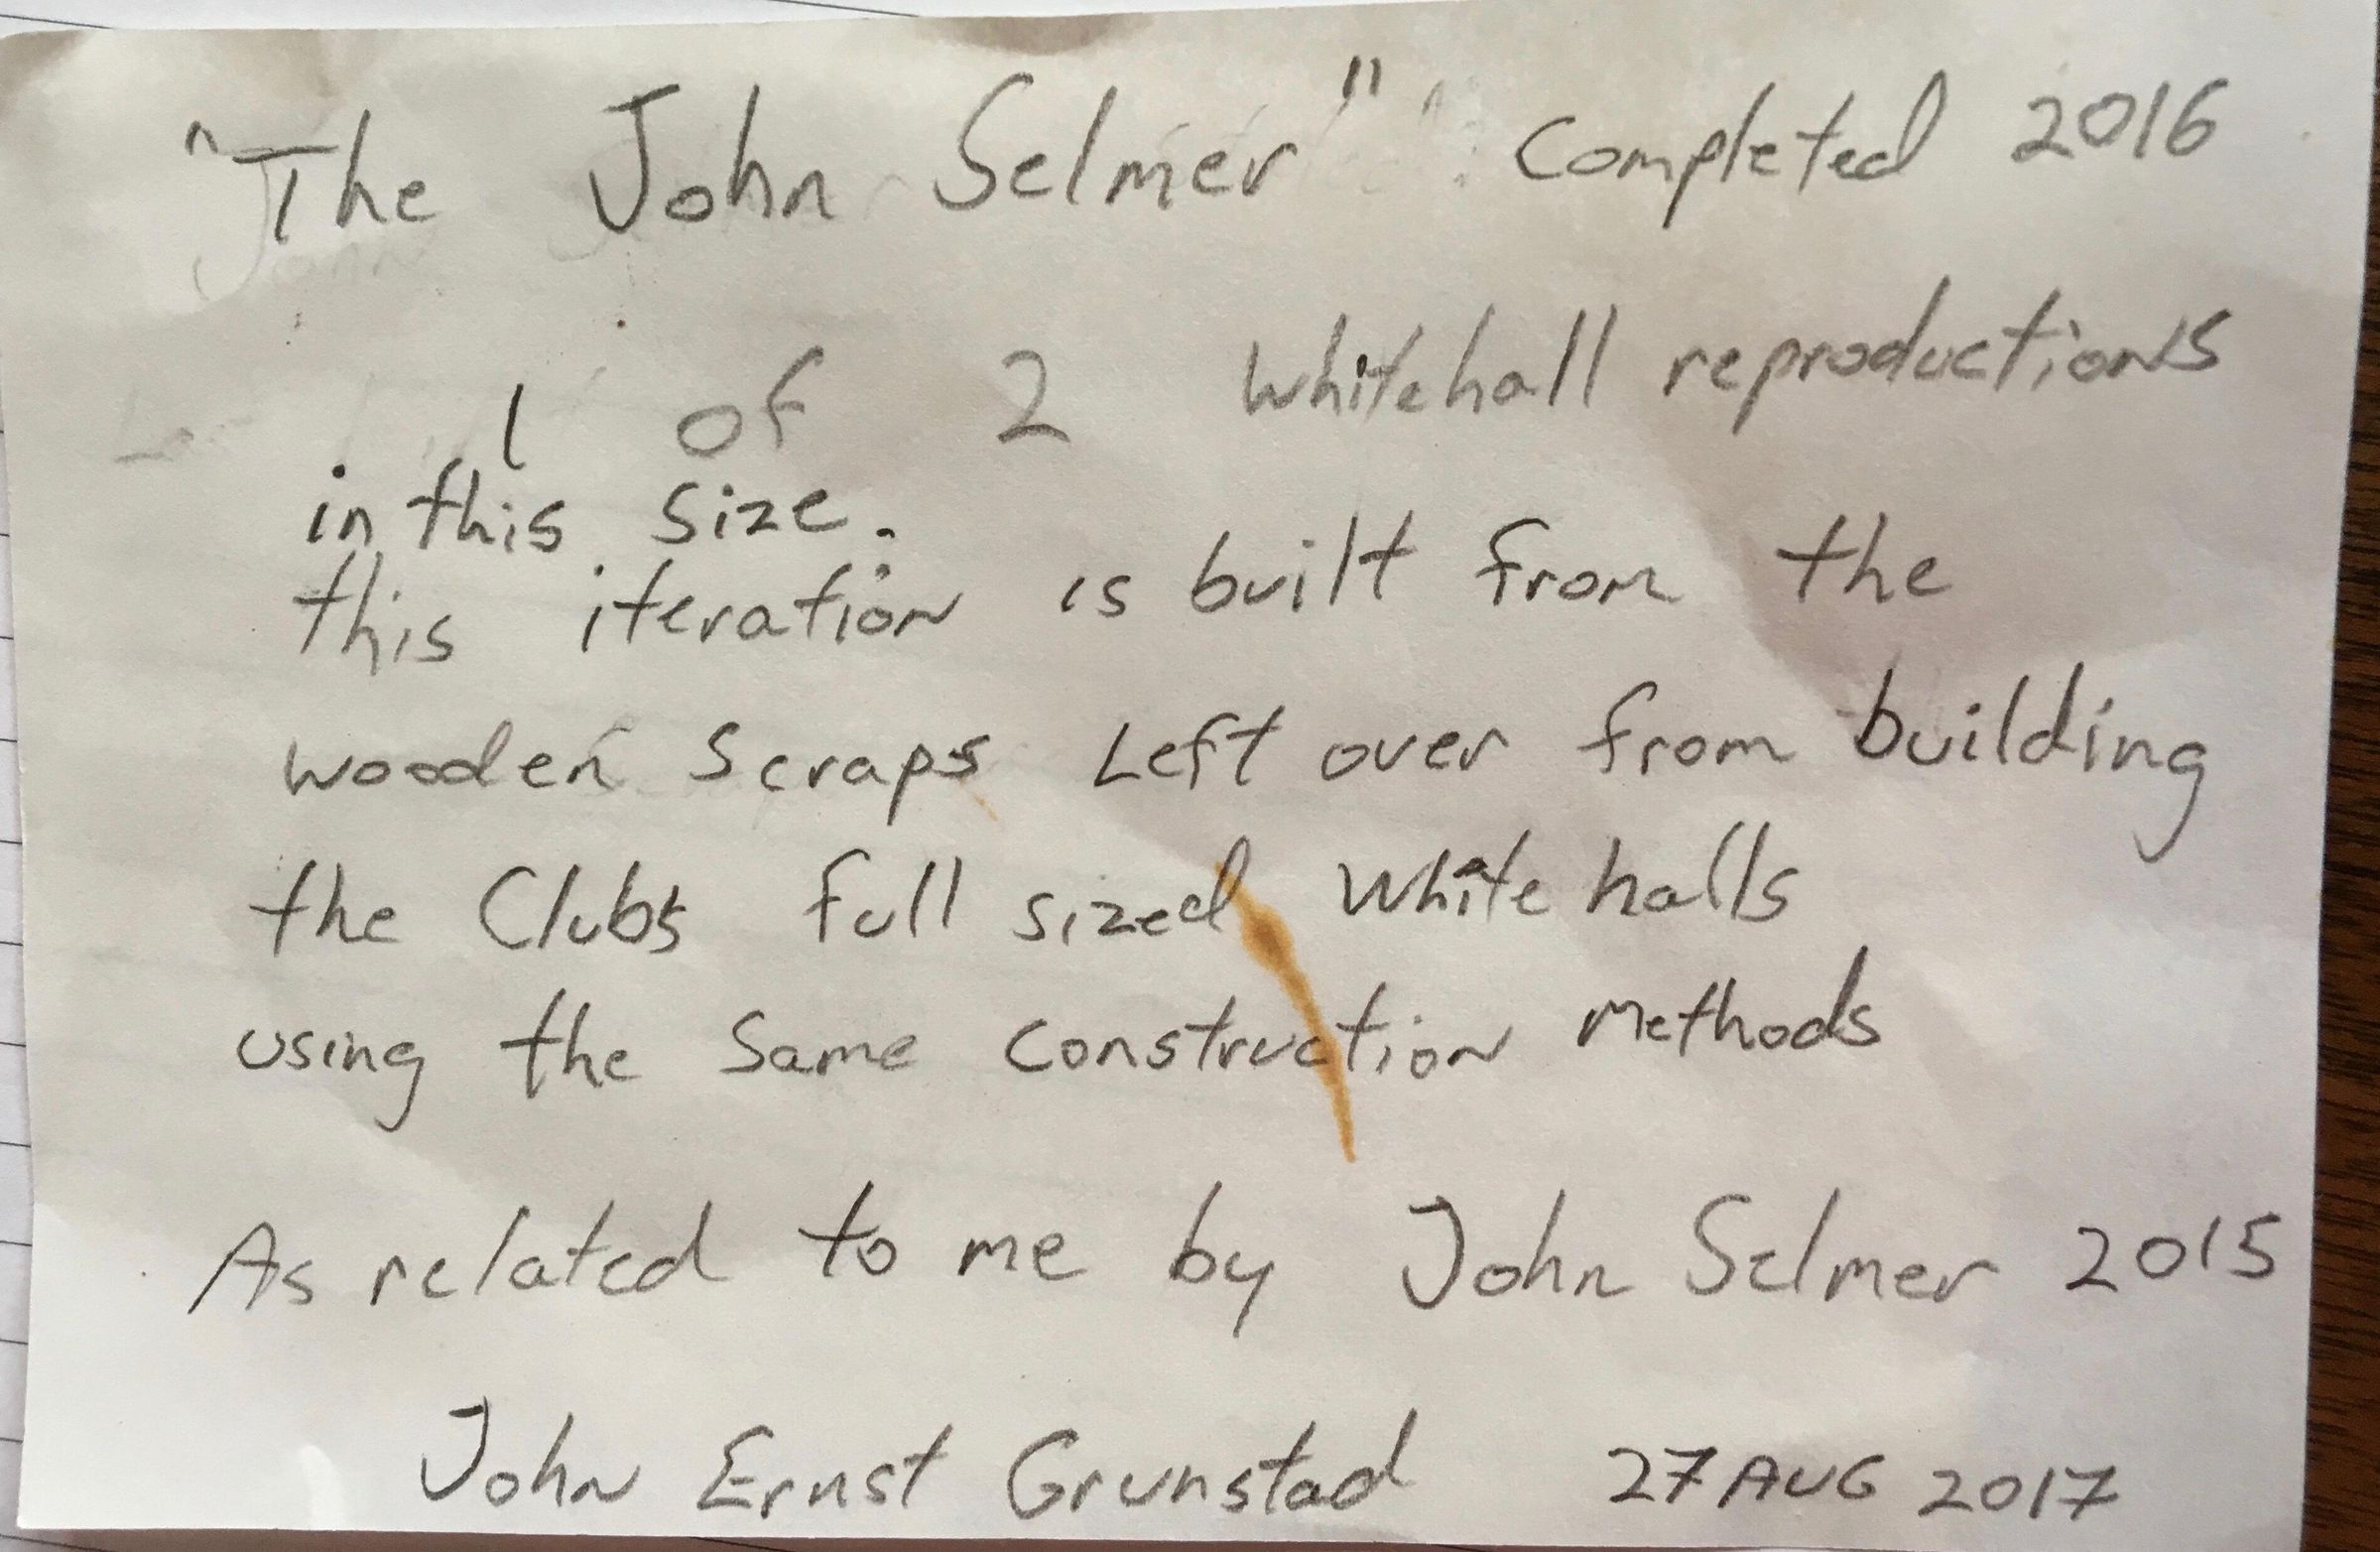 "The John Selmer" Completed 2016
1 of 2 Whitehall reproductions
in this size.
this iteration is built from the
wooden scraps Left over from building
the Clubs full sized White halls
using the same construction methods
As related to me by John Selmer 2015
John Ernst Grunstad 27 AUG 2017